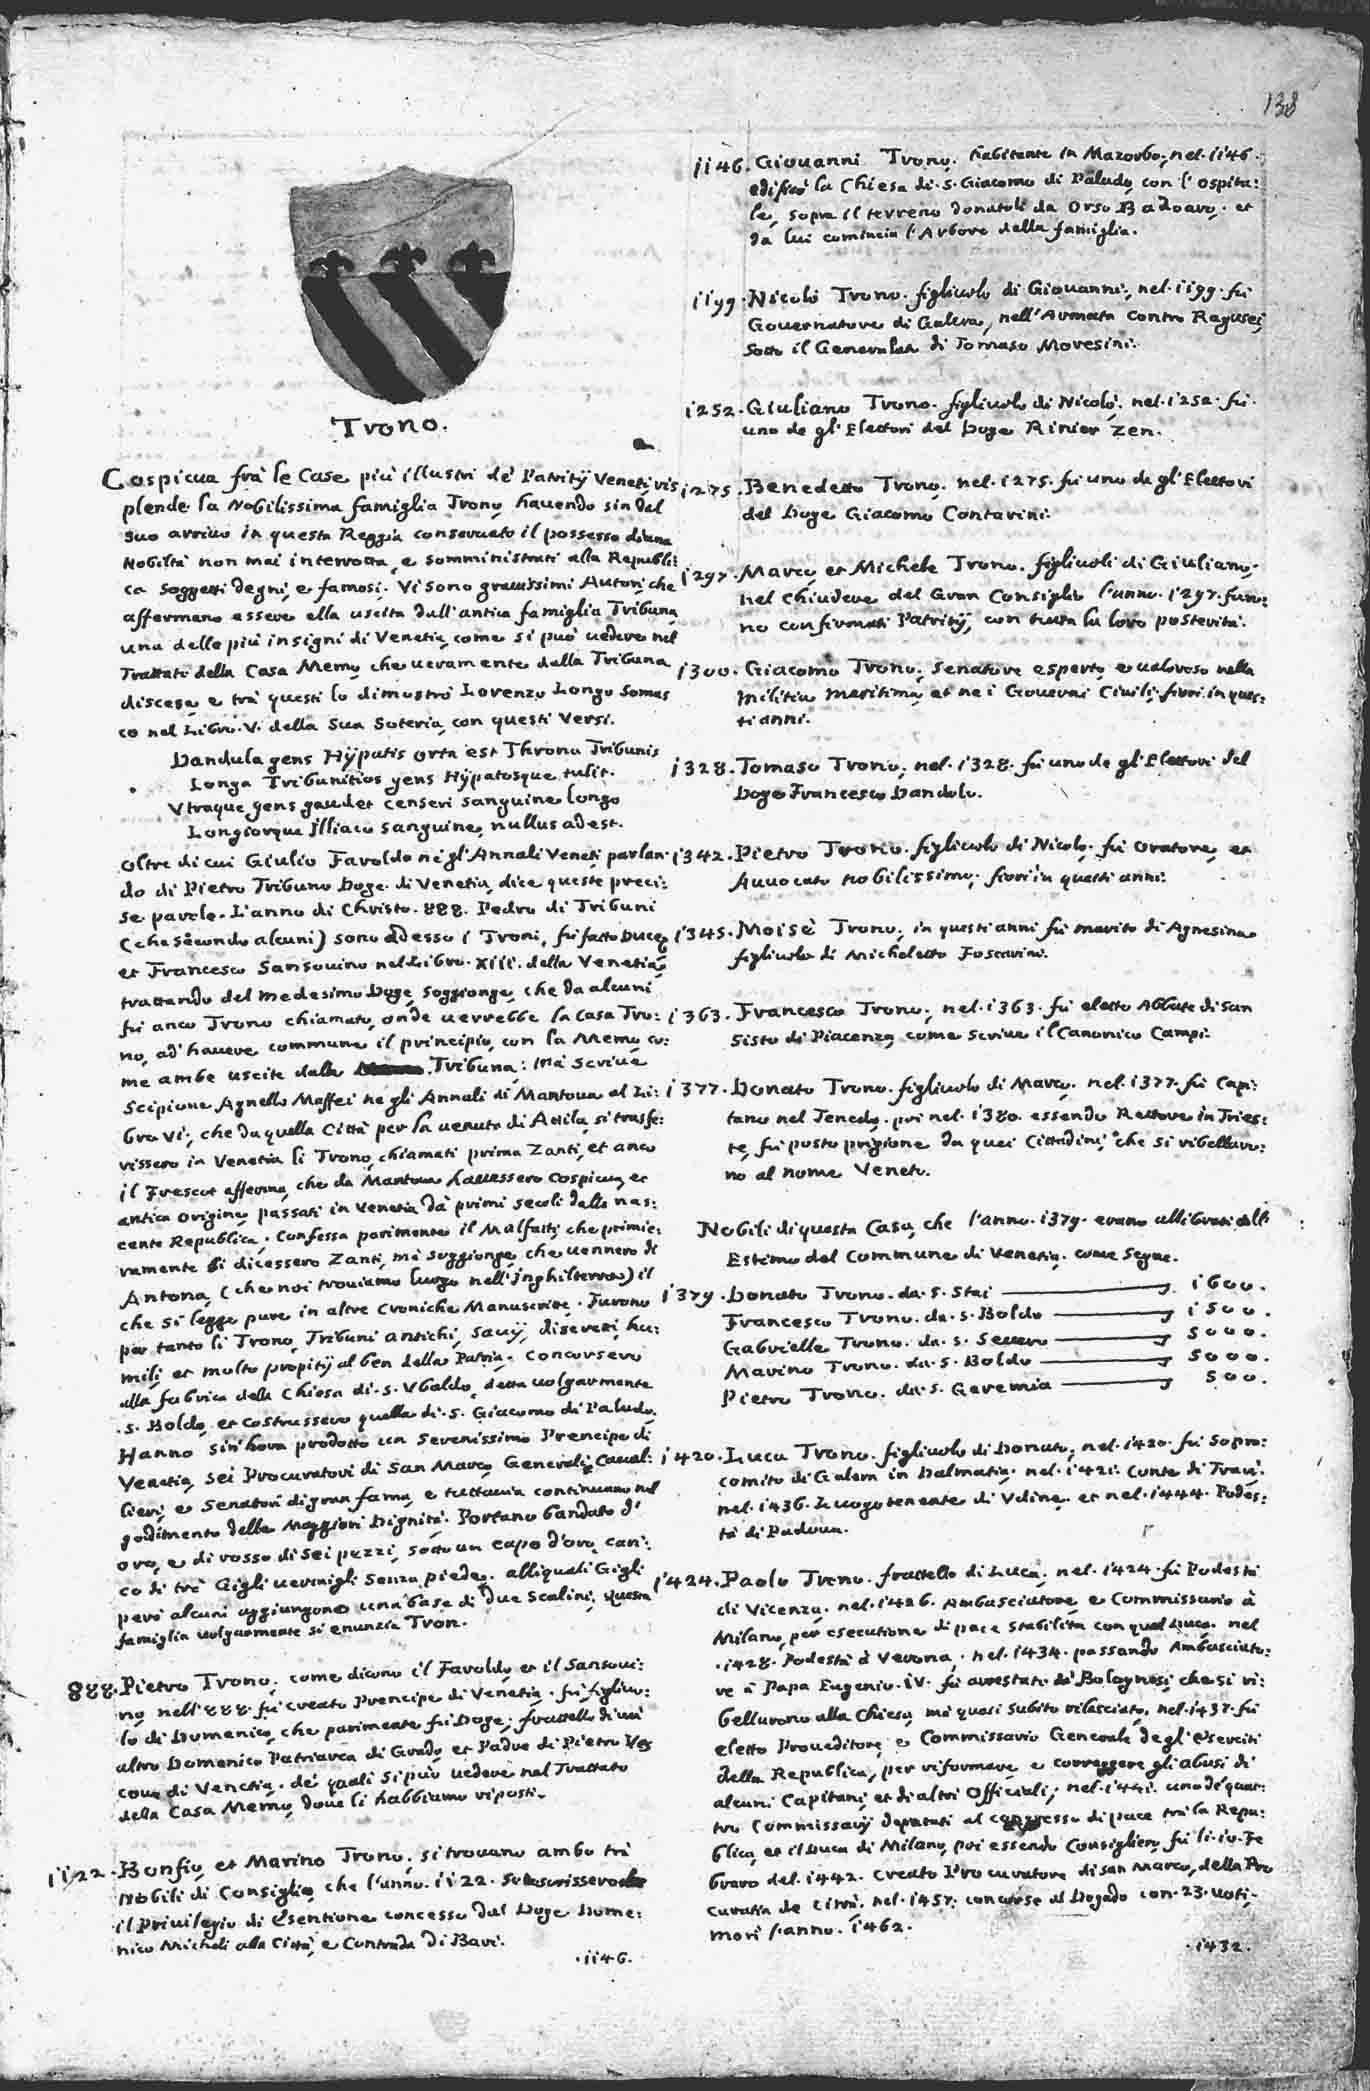 138
Trono.
Cospicua frà le Case più illustri de' Patritij Veneti, ris
plende la Nobilissima famiglia Trono, havendo sin dal
suo arrivo in questa Reggia conservato il possesso di una
Nobiltà non mai interrotta, e somministrati alla Republi:
ca soggetti degni, e famosi. Vi sono gravissimi Autori, che
affermano essere ella uscita dall'antica famiglia Tribuna,
una delle più insigni di Venetia, come si può vedere nel
Trattato della Casa Memo, che veramente dalla Tribuna
discese, e trà questi lo dimostra Lorenzo Longo Somas
co nel Libro. V. della Sua Soteria, con questi versi.
Dandula gens Hÿpatis orta est Throna Tribunis
Longa Tribunitios gens Hÿpatosque tulit.
Vtraque gens gaudet censeri sanguine longo
Longiorque Illiaco sanguine, nullus adest.
Oltre di cui Giulio Faroldo ne gl'Annali Veneti parlan
do di Pietro Tribuno Doge di Venetia, dice queste preci:
se parole. L'anno di Christo. 888. Pedro di Tribuni
(che secondo alcuni) sono adesso i Troni, fù fatto Duce,
et Francesco Sansovino nel Libro. XIII. della Venetia,
trattando del medesimo Doge, soggionge, che da alcuni
fù anco Trono chiamato, onde verrebbe la Casa Tro:
no, ad havere commune il principio, con la Memo, co:
me ambe uscite dalla Tribuna: mà scrive
Scipione Agnello Maffei ne gli Annali di Mantova al Li:
bro VI, che da quella Città per la venuta di Attila, si trasfe:
rissero in Venetia li Trono, chiamati prima Zanti, et anco
il Frescot afferma, che da Mantova havessero cospicua, et
antica origine, passati in Venetia dà primi secoli della nas:
cente Republica. Confessa parimente il Malfatti, che primie:
ramente si dicessero Zanti, mà soggionge, che vennero di
Antona, (che noi troviamo luogo nell'Inghilterra) il
che si legge pure in altre Croniche Manuscritte. Furono
per tanto li Trono, Tribuni antichi, savij, discreti, hu:
mili, et molto propitij al ben della Patria. Concorsero
alla fabrica della Chiesa di. S. Vbaldo, detta volgarmente
.S. Boldo, et costrussero quella di. S. Giacomo di Paludo.
Hanno sin'hora prodotto un Serenissimo Prencipe di
Venetia, sei Procuratori di San Marco, Generali, Caval:
lieri, e Senatori di gran fama, e tuttavia continuano nel
godimento delle Maggiori Dignità. Portano bandato d'
oro, e di rosso di sei pezzi, sotto un capo d'oro, cari:
co di trè Gigli vermigli senza piede. alli quali Gigli
però alcuni aggiungono una base di due Scalini, Questa
famiglia volgarmente si enunzia Tron.
888. Pietro Trono, come dicono il Faroldo, et il Sansovi:
no, nell'888. fù creato Prencipe di Venetia. fù figliuo:
lo di Domenico, che parimente fù Doge; fratello di un'
altro Domenico Patriarca di Grado, et Padre di Pietro Ves
covo di Venetia. de' quali si può vedere nel Trattato
della Casa Memo, dove li habbiamo riposti.
1122. Bonfio, et Marino Trono, si trovano ambo trà
Nobili di Consiglio, che l'anno. 1122. subscrissero
il Privilegio di Esentione concesso dal Doge Dome:
nico Micheli alla Città, e Contrada di Bari.
.1146.
1146. Giovanni Trono, habitante in Mazorbo, nel. 1146.
edificò la Chiesa di. S. Giacomo di Paludo, con l'ospita:
le, sopra il terreno donatoli da Orso Badoaro. et
da lui comincia l'Arbore della famiglia.
1199. Nicolò Trono. figliuolo di Giovanni, nel. 1199. fù
Governatore di Galera, nell'Armata contro Ragusei,
sotto il Generalato di Tomaso Moresini.
1252. Giuliano Trono. figliuolo di Nicolò. nel. 1252. fù
uno de gl'Elettori del Doge Rinier Zen.
1275. Benedetto Trono. nel. 1275. fù uno de gl'Elettori
del Doge Giacomo Contarini.
1297. Marco, et Michele Trono. figliuoli di Giuliano,
nel chiudere del Gran Consiglio l'anno. 1297. furo:
no confirmati Patritij, con tutta la loro posterità.
1300. Giacomo Trono, Senatore esperto, e valoroso nella
militia maritima, et ne i Governi Civili, fiorì in ques:
ti anni.
1328. Tomaso Trono, nel. 1328. fù uno de gl'Elettori del
Doge Francesco Dandolo.
1342. Pietro Trono. figliuolo di Nicolò. fù Oratore, et
Avvocato nobilissimo, fiorì in questi anni.
1345. Moisè Trono, in questi anni fù marito di Agnesina
figliuola di Micheletto Foscarini.
1363. Francesco Trono, nel. 1363. fù eletto Abbate di San
Sisto di Piacenza, come scrive il Canonico Campi.
1377. Donato Trono. figliuolo di Marco. nel. 1377. fù Capi:
tano nel Tenedo, poi nel. 1380. essendo Rettore in Tries:
te, fù posto prigione da quei Cittadini, che si ribellaro:
no al nome Veneto.
Nobili di questa Casa, che l'anno. 1379. erano allibrati all'
Estimo del Commune di Venetia, come segue.
1379. Donato Trono. da. S. Stai 1600.
Francesco Trono. da. S. Boldo 1500.
Gabrielle Trono. da. S. Severo 5000.
Marino Trono. da. S. Boldo 5000.
Pietro Trono. da. S. Geremia 500.
1420. Luca Trono. figliuolo di Donato, nel. 1420. fù Sopra:
comito di Galera in Dalmatia. nel. 1421. Conte di Traù.
nel. 1436. Luogotenente di Vdine, et nel. 1444. Podes:
tà di Padova.
1424. Paolo Trono. fratello di Luca, nel. 1424. fù Podestà
di Vicenza. nel. 1426. Ambasciatore, e Commissario à
Milano, per esecutione di pace stabilita con quel Duca. nel
.1428. Podestà à Verona. nel. 1434. passando Ambasciato:
re à Papa Eugenio. IV. fù arrestato dà Bolognesi, che si ri:
bellarono alla Chiesa, mà quasi subito rilasciato, nel. 1437. fù
eletto Proveditore, e Commissario Generale de gl'Eserciti
della Republica, per riformare e correggere gli abusi di
alcuni Capitani, et di altri Officiali, nel. 1441. uno di quat:
tro Commissarij deputati al congresso di pace trà la Repu:
blica, et il Duca di Milano, poi essendo Consigliero, fù li. 10. Fe
braro del. 1442. creato Procuratore di San Marco, della Pro
curatia de Citrà. nel. 1457. concorse al Dogado con. 23. voti.
morì l'anno. 1462.
.1432.